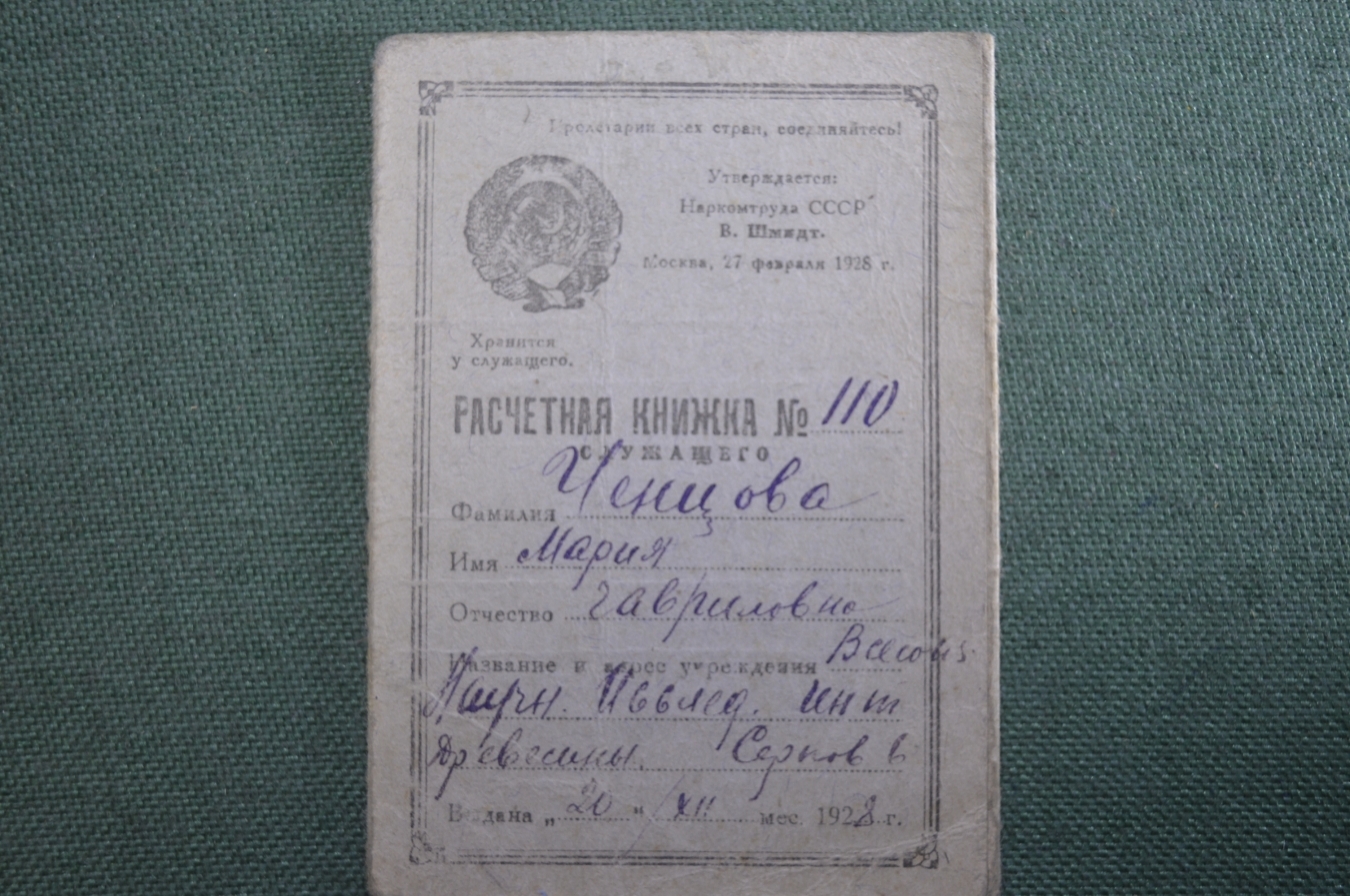 Пролетарии всех стран, соединяйтесь!
Утверждается:
Наркомтруда СССР
В. Шмидт.
Москва, 27 февраля 1928 г.
Хранится
у служащего.
РАСЧЕТНАЯ КНИЖКА № 110
СЛУЖАЩЕГО
Фамилия Ченцова
Имя Мария
Отчество Гавриловна
Название и адрес учреждения Всесоюз.
Научн. Исслед. Инт
Древесины.
Выдана „20“ XII мес. 1928 г.